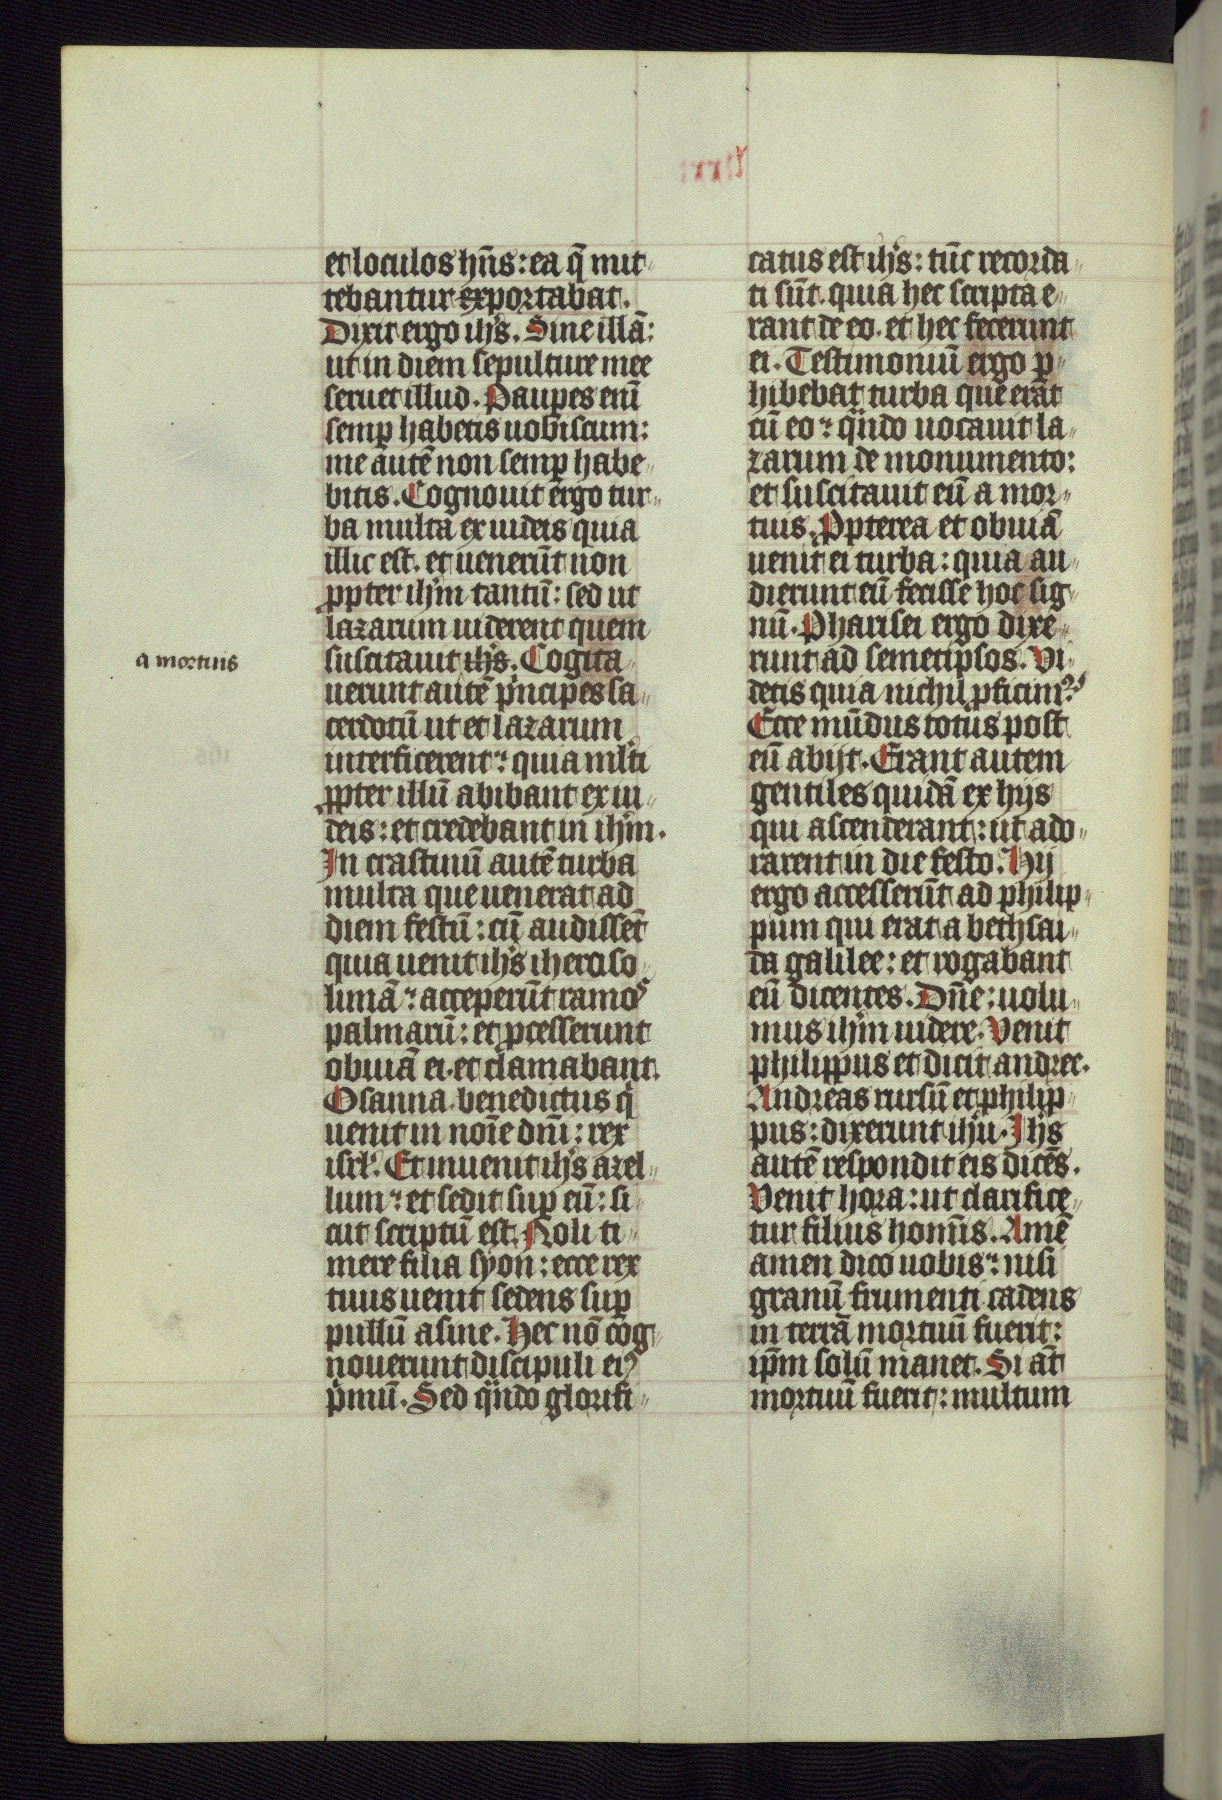 et loculos hn̄s: ea q̄ mit-
tebantur exportabat.
Dixit ergo ih̄s. Sine illā:
ut in diem sepulture mee
seruet illud. Paup̲es enī
semp̲ habetis uobiscum:
me autē non semp̲ habe-
bitis. Cognouit ergo tur-
ba multa ex iudeis quia
illic est. et uenerūt non
ꝓpter ih̄m tantū: sed ut
lazarum uiderent quem
a mortuis
suscitauit ih̄s. Cogita-
uerunt autē pͥncipes sa-
cerdotū ut et lazarum
interficerent: quia ml̄ti
ꝓpter illū abibant ex iu-
deis: et credebant in ih̄m.
In crastinū autē turba
multa que uenerat ad
diem festū: cū audissēt
quia uenit ih̄s iheroso-
limā: acceperūt ramos
palmarū: et ꝓcesserunt
obuiā ei. et clamabant.
Osanna. benedictus qͥ
uenit in noīe dn̄i: rex
isrl̄. Et inuenit ih̄s azel-
lum: et sedit sup̲ eū: si-
cut scriptū est. Noli ti-
mere filia syon: ecce rex
tuus uenit sedens sup̲
pullū asine. Hec nō cōg-
nouerunt discipuli eiꝰ
pͥmū. Sed qn̄do glorifi-
catus est ih̄s: tūc recorda-
ti sūt. quia hec scripta e-
rant de eo. et hec fecerunt
ei. Testimoniū ergo p̲-
hibebat turba que erāt
cū eo: qn̄do uocauit la-
zarum de monumento:
et suscitauit eū a mor-
tuis. Ꝓpterea et obuiā
uenit ei turba: quia au-
dierunt eū fecisse hoc sig-
nū. Pharisei ergo dixe-
runt ad semetipsos. Vi-
detis quia nichil ꝓficimꝰ?
Ecce mūdus totus post
eū abijt. Erant autem
gentiles quidā ex hijs
qui ascenderant: ut ado-
rarent in die festo. Hij
ergo accesserūt ad philip-
pum qui erat a bethsai-
da galilee: et rogabant
eū dicentes. Dn̄e: uolu-
mus ih̄m uidere. Venit
philippus et dicit andree.
Andreas rursū et philip-
pus: dixerunt ih̄u. Ih̄s
autē respondit eis dicēs.
Venit hora: ut clarifice-
tur filius homīs. Amē
amen dico uobis: nisi
granū frumenti cadens
in terrā mortuū fuerit:
ip̄m solū manet. Si aūt
mortuū fuerit: multum